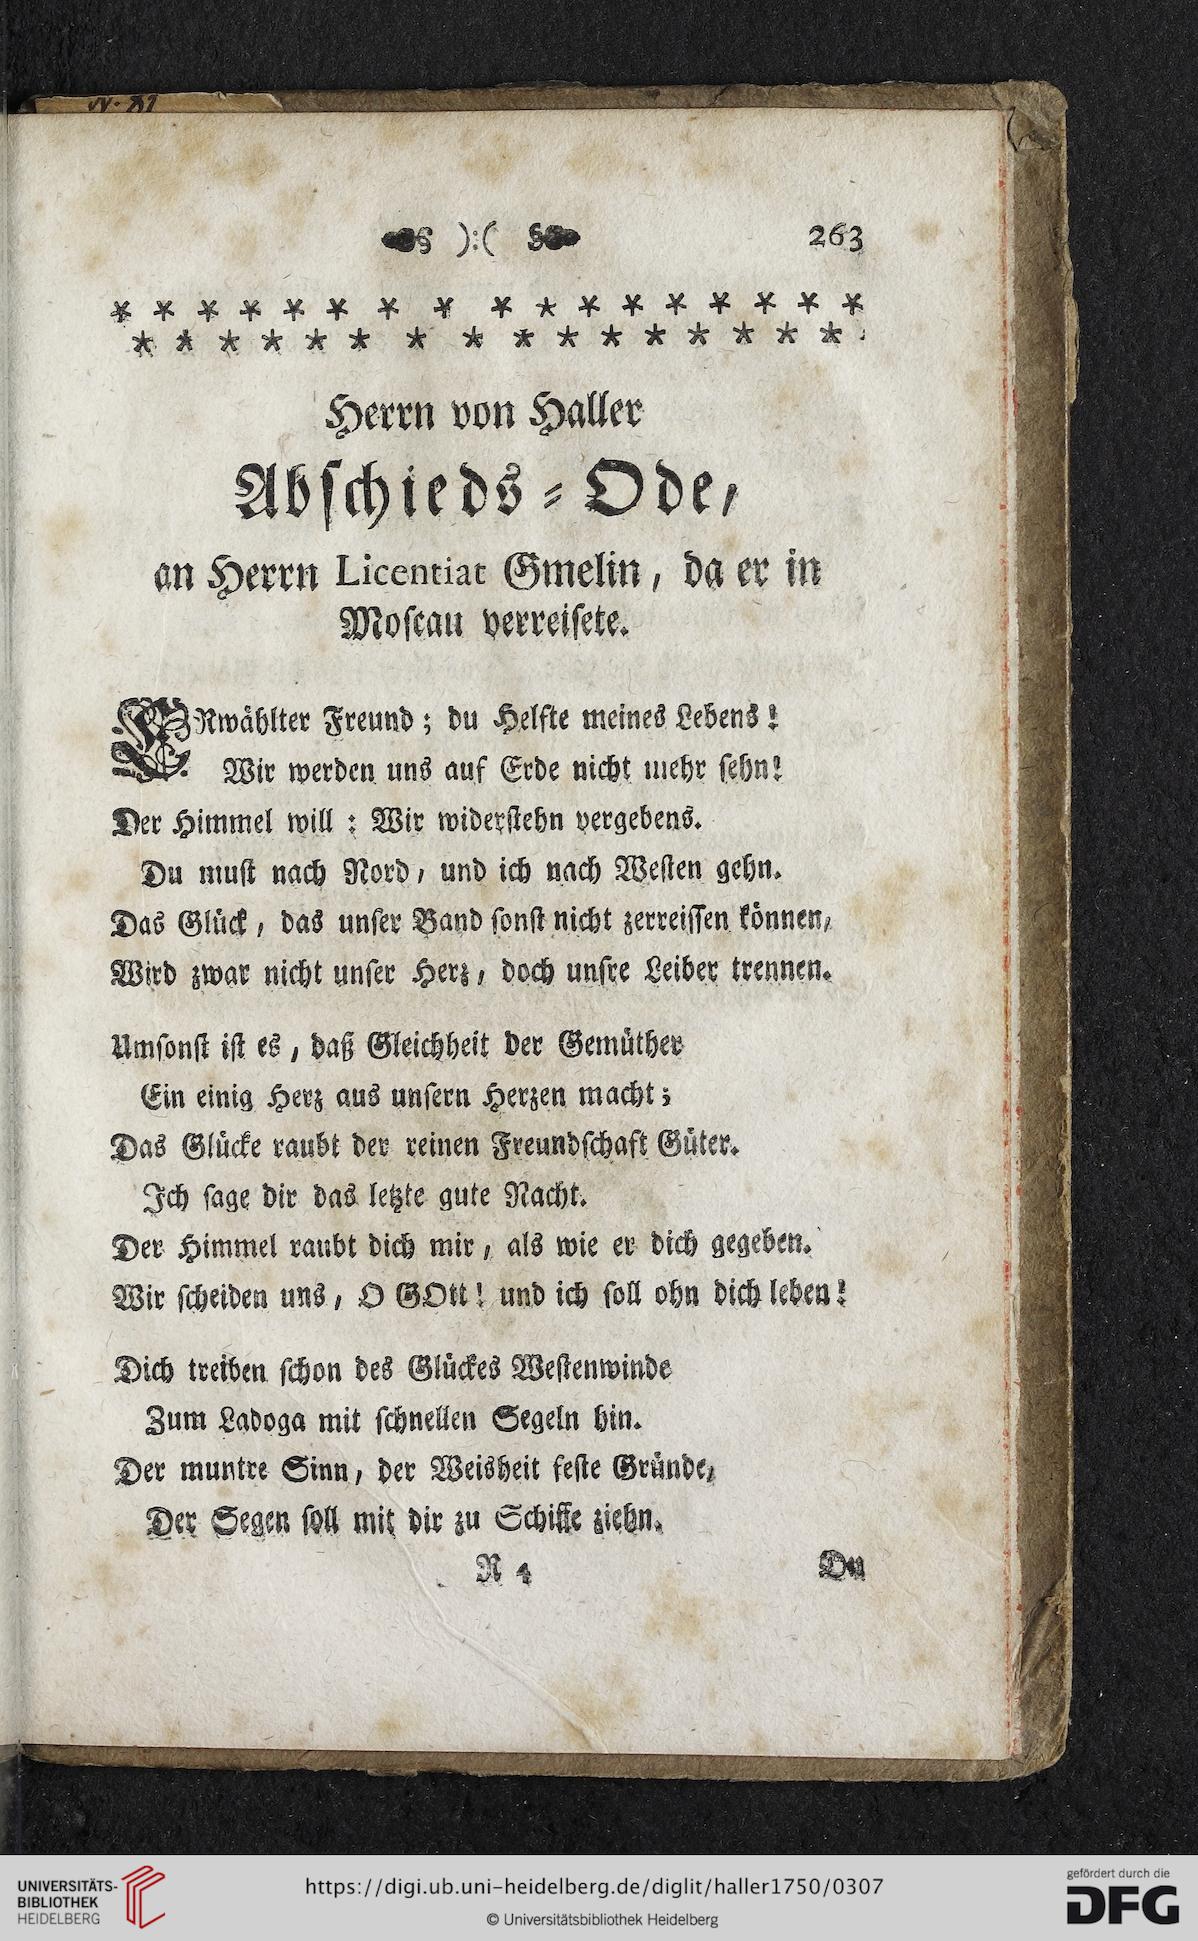 ):( 263
Herrn von Haller
Abſchieds-Ode,
an Herrn Licentiat Gmelin, da er in
Moſcau verreiſete.
ERwåhlter Freund; du Helfte meines Lebens!
Wir werden uns auf Erde nicht mehr ſehn!
Der Himmel will: Wir widerſtehn vergebens.
Du muſt nach Nord, und ich nach Weſten gehn.
Das Glück, das unſer Band ſonſt nicht zerreiſſen kônnen,
Wird zwar nicht unſer Herz, doch unſre Leiber trennen.
Umſonſt iſt es, daß Gleichheit der Gemüther
Ein einig Herz aus unſern Herzen macht;
Das Glücke raubt der reinen Freundſchaft Güter.
Ich ſage dir das letzte gute Nacht.
Der Himmel raubt dich mir, als wie er dich gegeben.
Wir ſcheiden uns, O GOtt! und ich ſoll ohn dich leben!
Dich treiben ſchon des Glückes Weſtenwinde
Zum Ladoga mit ſchnellen Segeln hin.
Der muntre Sinn, der Weisheit feſte Gründe,
Der Segen ſoll mit dir zu Schiffe ziehn.
R 4 Du
UNIVERSITÄTS-
BIBLIOTHEK
HEIDELBERG
https://digi.ub.uni-heidelberg.de/diglit/haller1750/0307
© Universitätsbibliothek Heidelberg
gefördert durch die
DFG